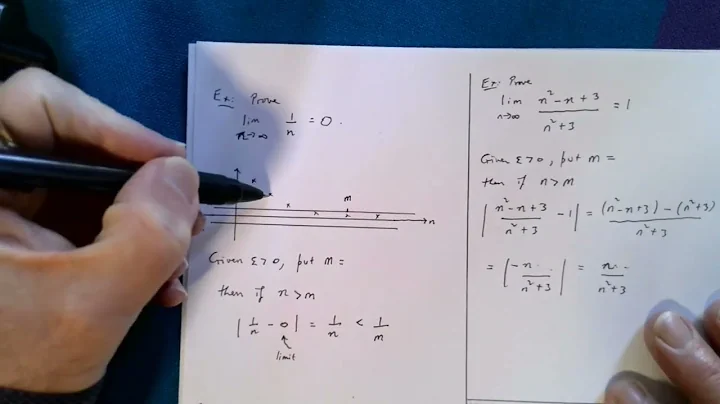 Ex: Prove
lim 1/n = 0.
n→∞
m
n
Given ε>0, put m =
then if n>m
|1/n - 0| = 1/n < 1/m
limit
Ex: Prove
lim (n²-n+3)/(n²+3) = 1
n→∞
Given ε>0, put m =
then if n>m
|(n²-n+3)/(n²+3) - 1| = ((n²-n+3) - (n²+3))/(n²+3)
= |-n../(n²+3)| = n../(n²+3)